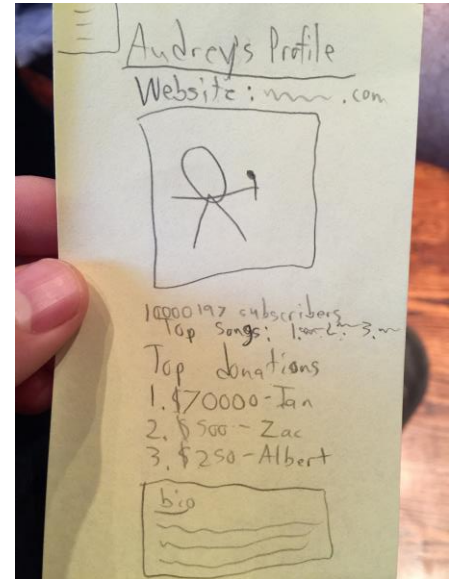 Audrey's Profile
Website: .com
10000197 subscribers
Top Songs: 1. 2. 3.
Top donations
1. $70000-Ian
2. $500-Zac
3. $250-Albert
bio